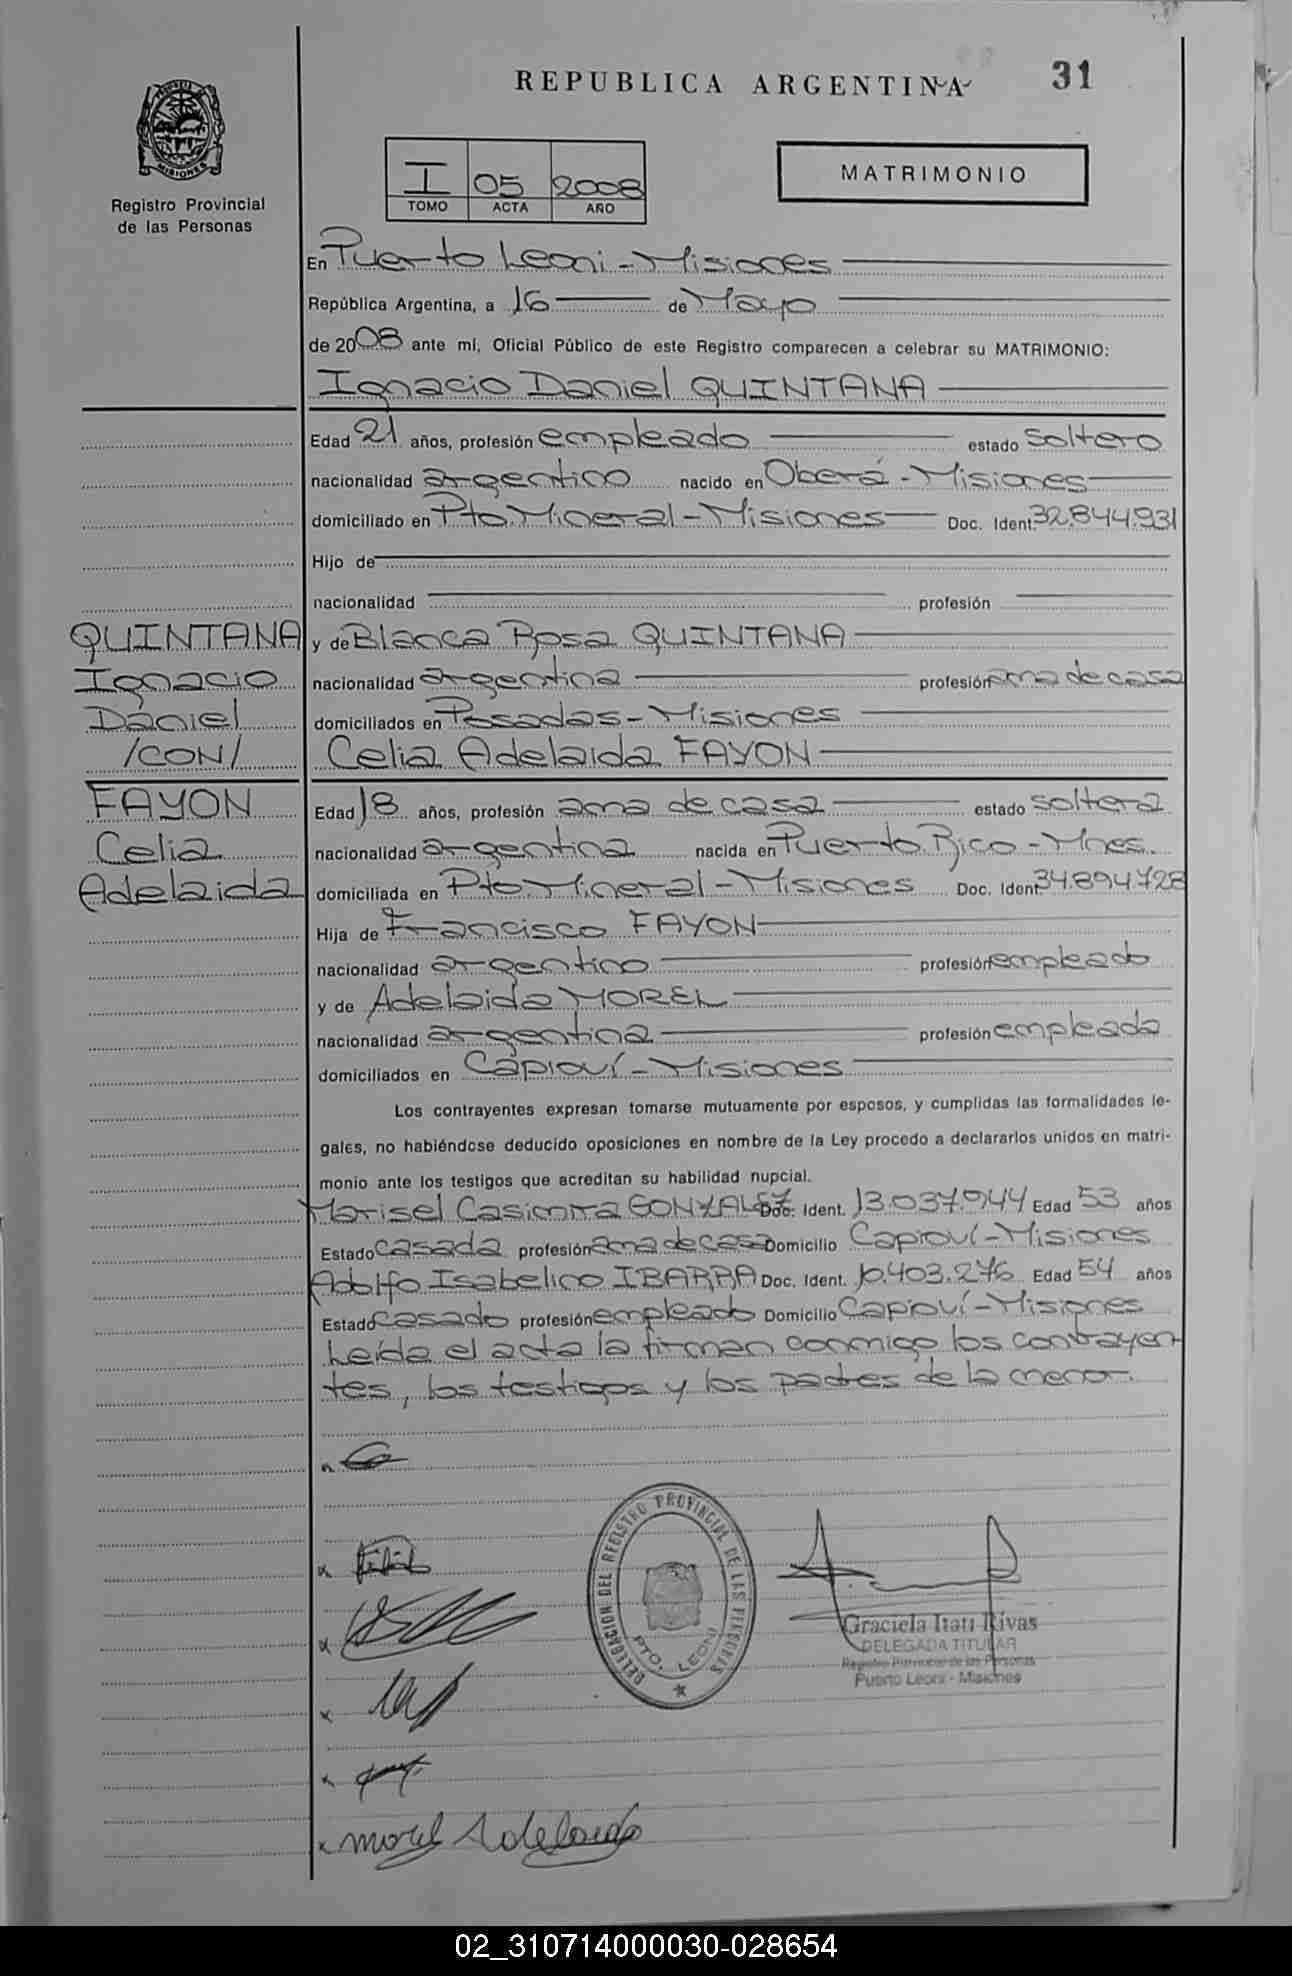 REPUBLICA ARGENTINA
31
MISIONES
Registro Provincial
de las Personas
I 05 2008
TOMO ACTA AÑO
MATRIMONIO
En Puerto Leoni - Misiones
República Argentina, a 16 de Mayo
de 2008 ante mí, Oficial Público de este Registro comparecen a celebrar su MATRIMONIO:
Ignacio Daniel QUINTANA
Edad 21 años, profesión empleado estado soltero
nacionalidad argentino nacido en Oberá - Misiones
domiciliado en Pto. Mineral - Misiones Doc. Ident. 32.844.931
Hijo de
nacionalidad profesión
y de Blanca Rosa QUINTANA
nacionalidad argentina profesión ama de casa
domiciliados en Posadas - Misiones
Celia Adelaida FAYON
QUINTANA
Ignacio
Daniel
/CON/
FAYON
Celia
Adelaida
Edad 18 años, profesión ama de casa estado soltera
nacionalidad argentina nacida en Puerto Rico - Mnes.
domiciliada en Pto. Mineral - Misiones Doc. Ident. 34.894.728
Hija de Francisco FAYON
nacionalidad argentino profesión empleado
y de Adelaida MOREL
nacionalidad argentina profesión empleada
domiciliados en Capioví - Misiones
Los contrayentes expresan tomarse mutuamente por esposos, y cumplidas las formalidades le-
gales, no habiéndose deducido oposiciones en nombre de la Ley procedo a declararlos unidos en matri-
monio ante los testigos que acreditan su habilidad nupcial.
Marisel Casimira GONZALEZ Doc. Ident. 13.037.944 Edad 53 años
Estado casada profesión ama de casa Domicilio Capioví - Misiones
Adolfo Isabelino IBARRA Doc. Ident. 10.403.276 Edad 54 años
Estado casado profesión empleado Domicilio Capioví - Misiones
Leída el acta la firman conmigo los contrayen-
tes, los testigos y los padres de la menor.
DELEGACION DEL REGISTRO PROVINCIAL DE LAS PERSONAS
PTO. LEONI
Graciela Itatí Rivas
DELEGADA TITULAR
Registro Provincial de las Personas
Puerto Leoni - Misiones
x Morel Adelaida
02_310714000030-028654